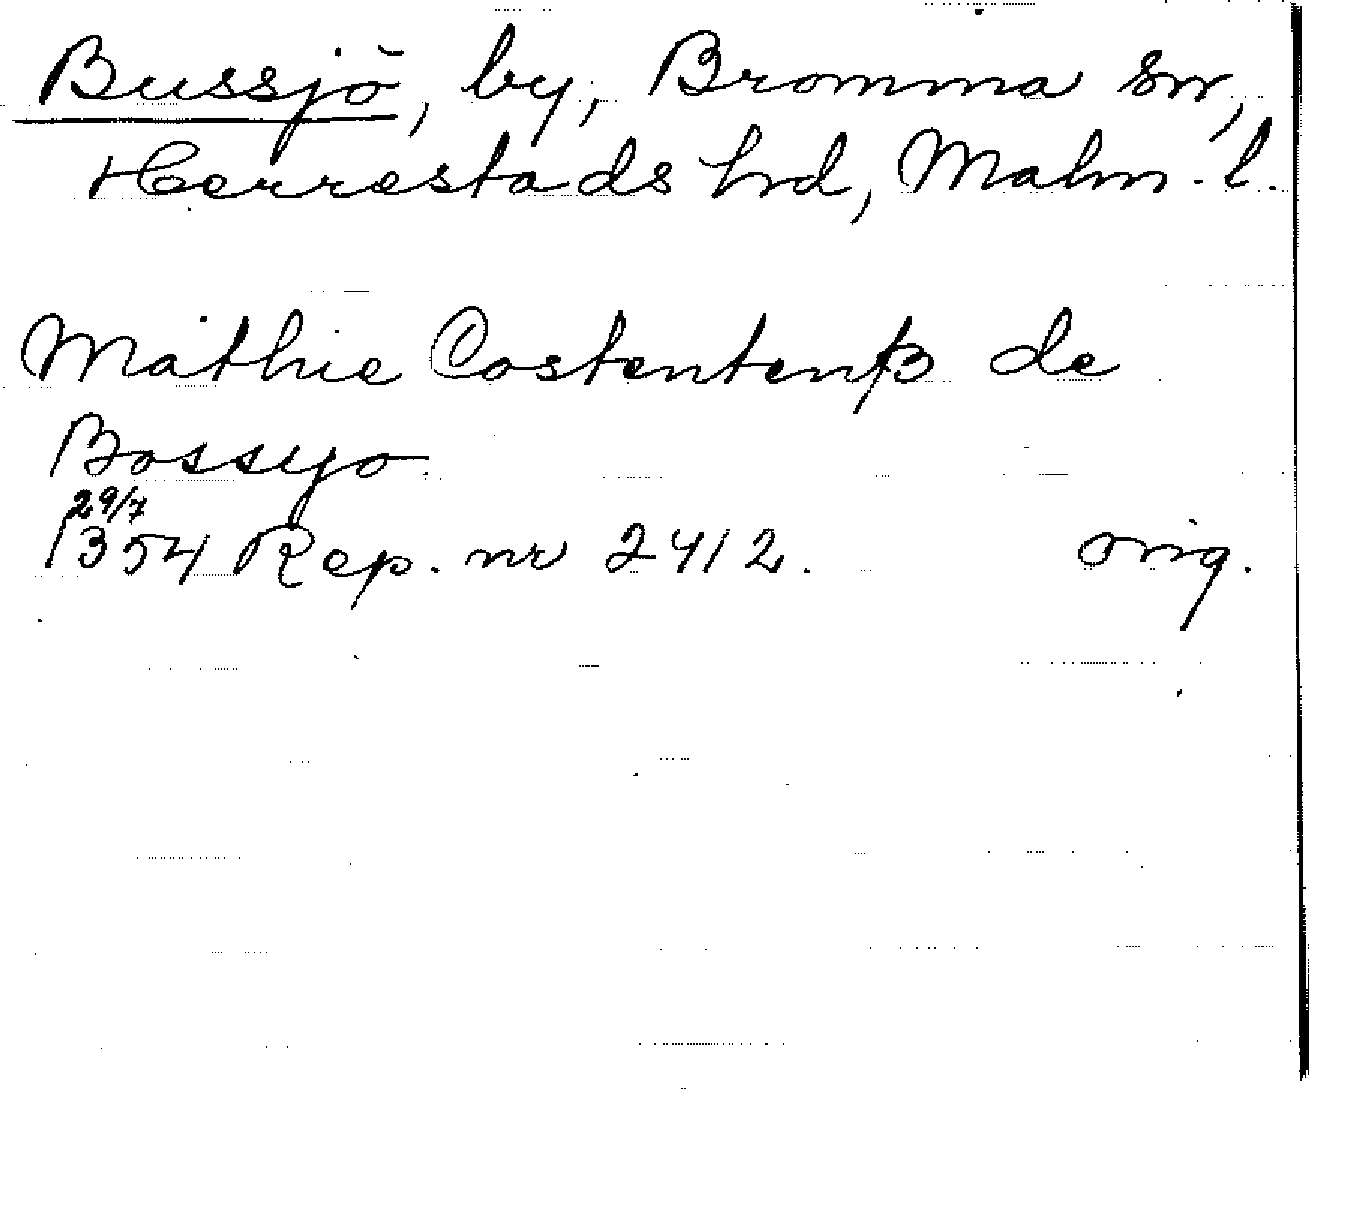 Bussjö, by, Bromma sn,
Herrestads hrd, Malm. l.
Mathie Costentenß de
Bossyo
29/7
1354 Rep. nr 2412. orig.